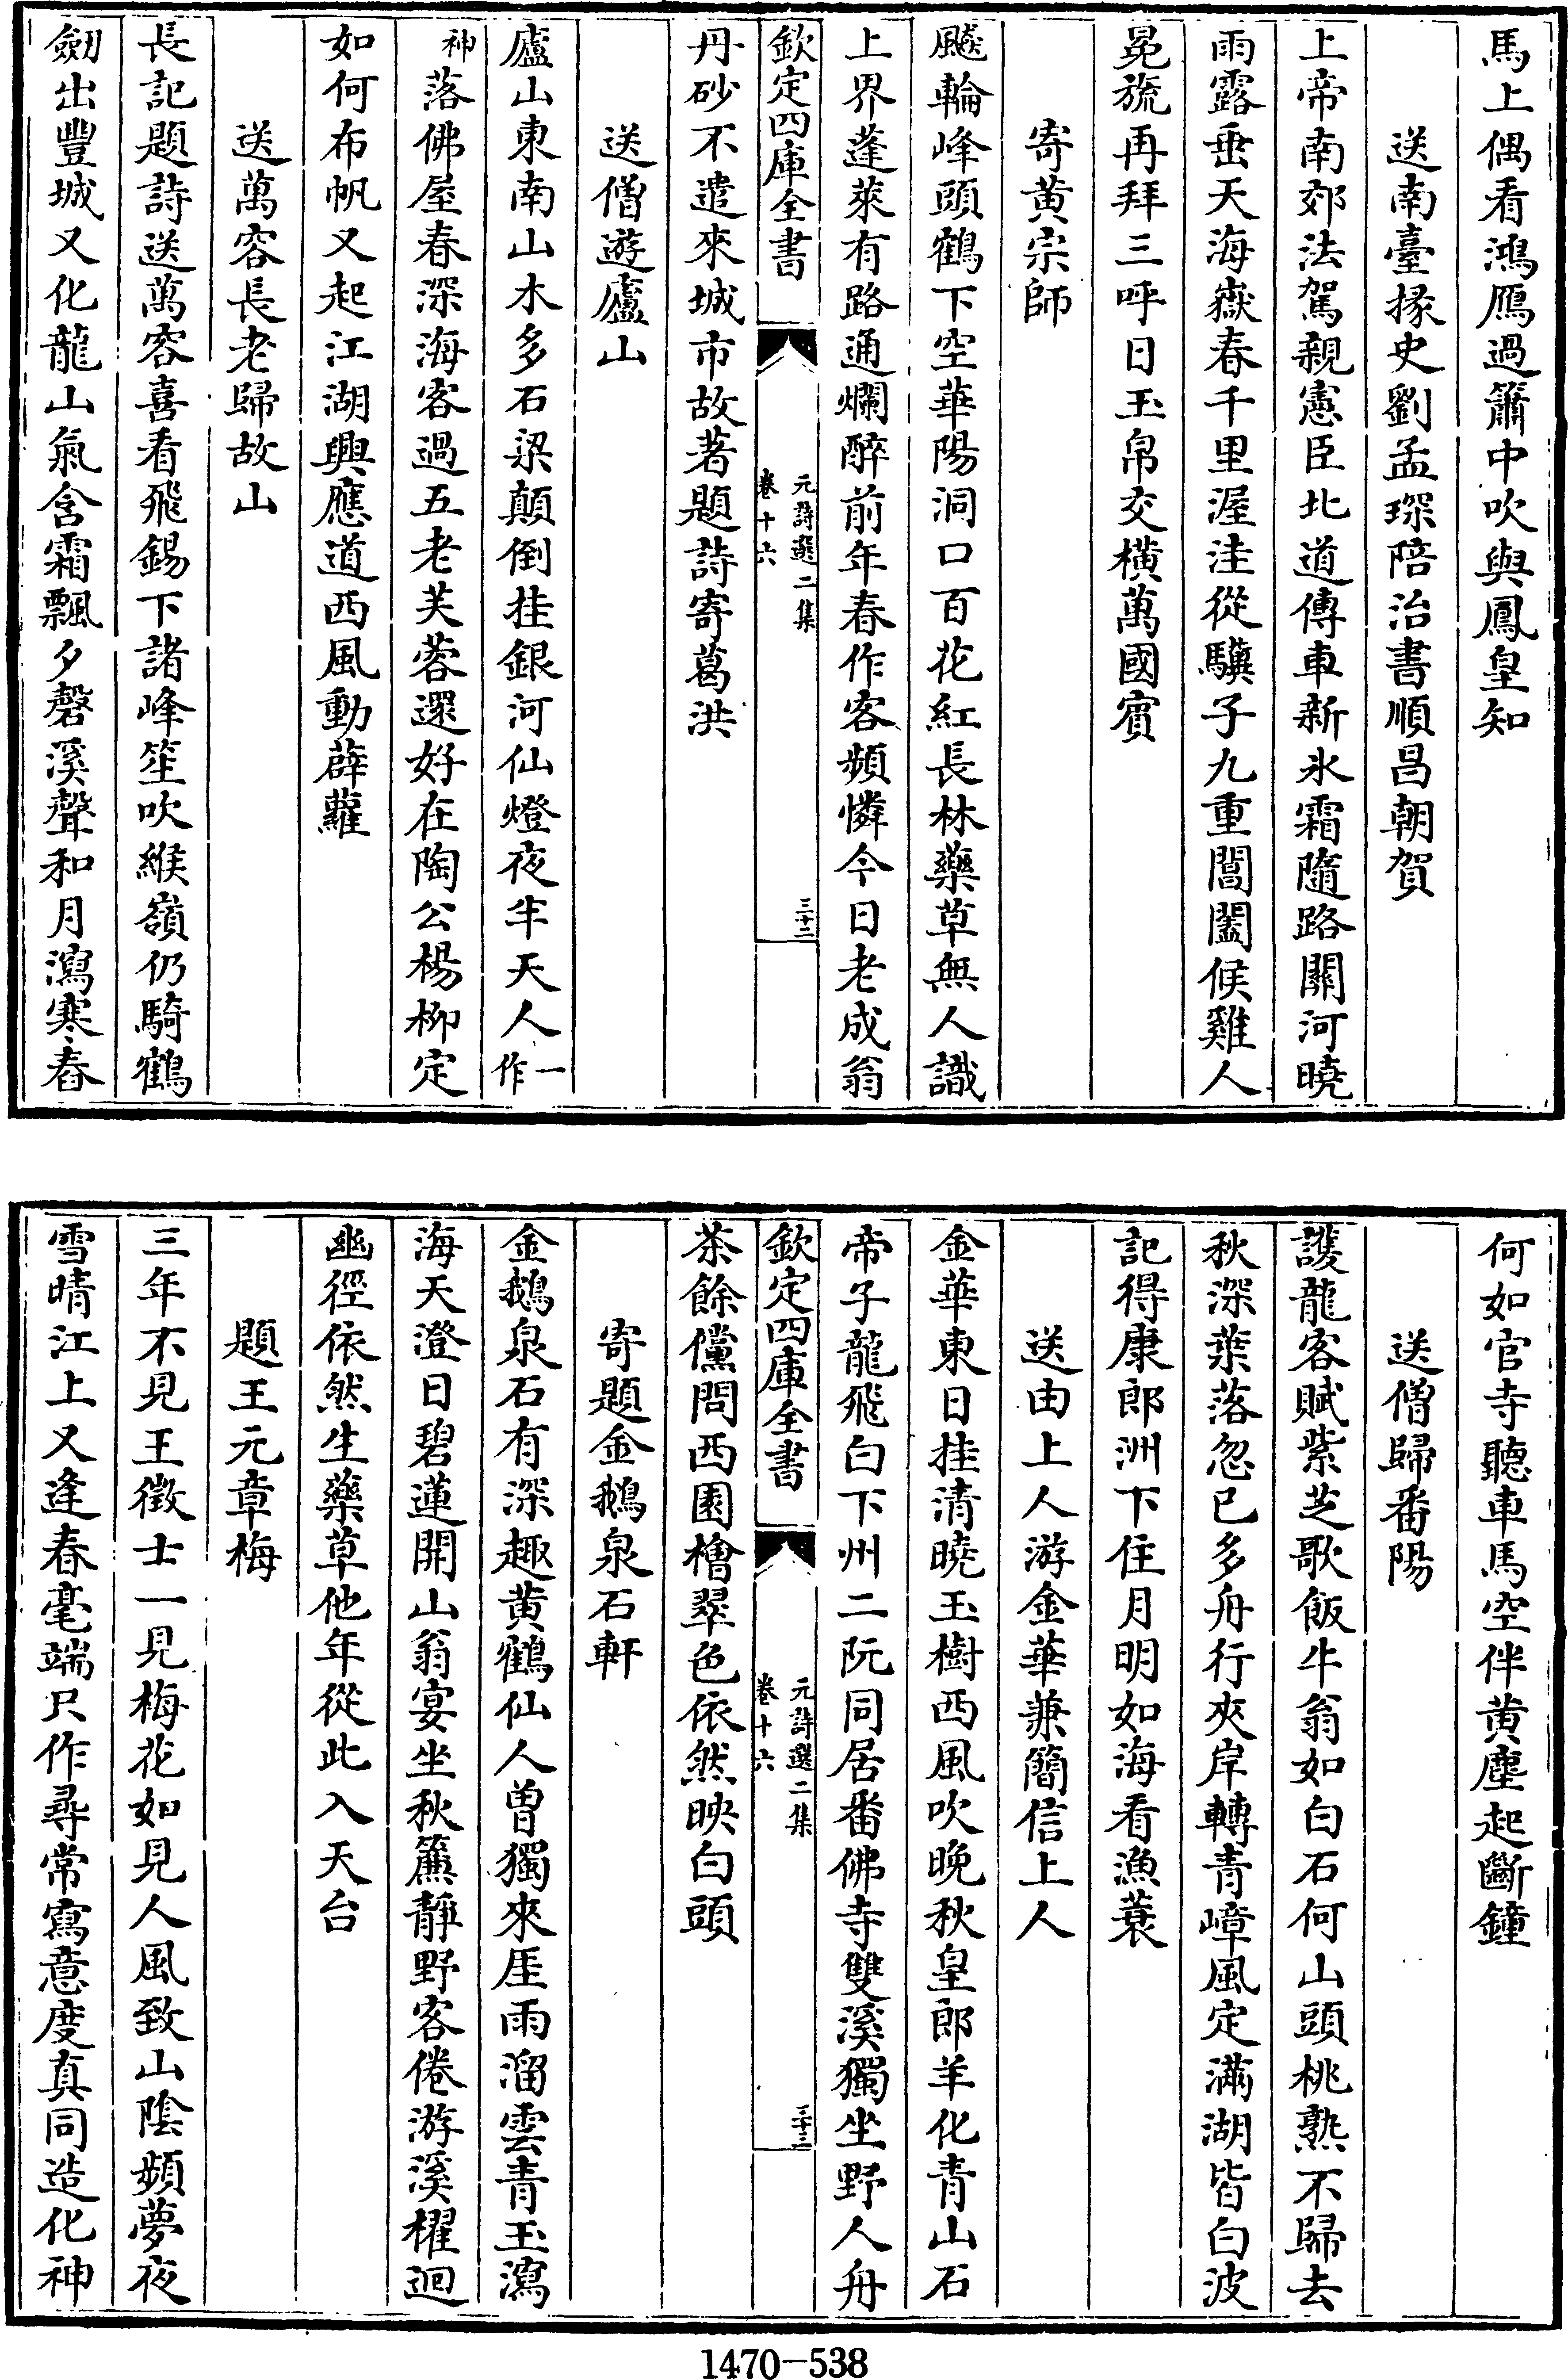 馬上偶看鴻鴈過簫中吹與鳳皇知
送南臺掾史劉孟琛陪治書順昌朝賀
上帝南郊法駕親憲臣北道傳車新氷霜隨路關河曉
雨露垂天海嶽春千里渥洼從驥子九重閶闔候雞人
冕旒再拜三呼日玉帛交橫萬國賓
寄黄宗師
飈輪峰頭鶴下空華陽洞口百花紅長林藥草無人識
上界蓬萊有路通爛醉前年春作客頻憐今日老成翁
欽定四庫全書
元詩選二集
卷十六
三十二
丹砂不遣來城市故著題詩寄葛洪
送僧遊廬山
廬山東南山木多石梁顛倒挂銀河仙燈夜半天人一作
神落佛屋春深海客過五老芙蓉還好在陶公楊柳定
如何布帆又起江湖興應道西風動薜蘿
送萬容長老歸故山
長記題詩送萬容喜看飛錫下諸峰笙吹緱嶺仍騎鶴
劒出豐城又化龍山氣含霜飄夕磬溪聲和月瀉寒舂
何如官寺聽車馬空伴黄塵起斷鐘
送僧歸番陽
護龍客賦紫芝歌飯牛翁如白石何山頭桃熟不歸去
秋深葉落忽已多舟行夾岸轉青嶂風定滿湖皆白波
記得康郎洲下住月明如海看漁蓑
送由上人游金華兼簡信上人
金華東日挂清曉玉樹西風吹晚秋皇郎羊化青山石
帝子龍飛白下州二阮同居番佛寺雙溪獨坐野人舟
欽定四庫全書
元詩選二集
卷十六
三十三
茶餘儻問西園檜翠色依然映白頭
寄題金鵝泉石軒
金鵝泉石有深趣黄鶴仙人曾獨來厓雨溜雲青玉瀉
海天澄日碧蓮開山翁宴坐秋簾靜野客倦游溪櫂迴
幽徑依然生藥草他年從此入天台
題王元章梅
三年不見王徵士一見梅花如見人風致山陰頻夢夜
雪晴江上又逢春毫端只作尋常寫意度真同造化神
1470-538